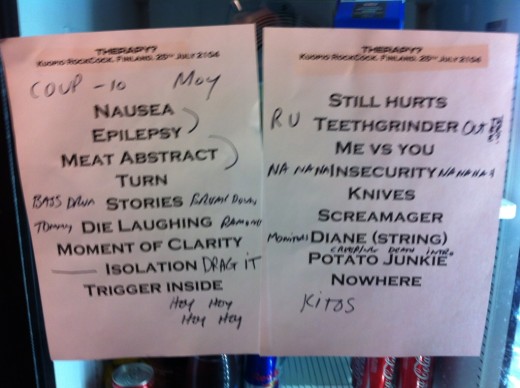 THERAPY?
KUOPIO ROCKCOCK, FINLAND, 25TH JULY 2014
COUP - 10 Moy
NAUSEA
EPILEPSY
MEAT ABSTRACT
TURN
STORIES
Tommy DIE LAUGHING RAMONE
MOMENT OF CLARITY
ISOLATION DRAG IT
TRIGGER INSIDE
HEY HEY
HEY HEY
THERAPY?
KUOPIO ROCKCOCK, FINLAND, 25TH JULY 2014
STILL HURTS
RU TEETHGRINDER OUT
ME VS YOU
NA NANA INSECURITY NANANAH
KNIVES
SCREAMAGER
DIANE (STRING)
INTRO
POTATO JUNKIE
NOWHERE
KITOS